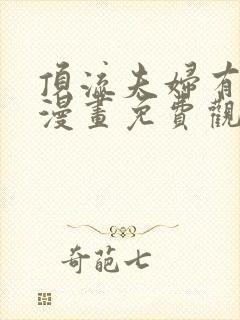 頂流夫婦有
漫畫免費觀
奇葩七